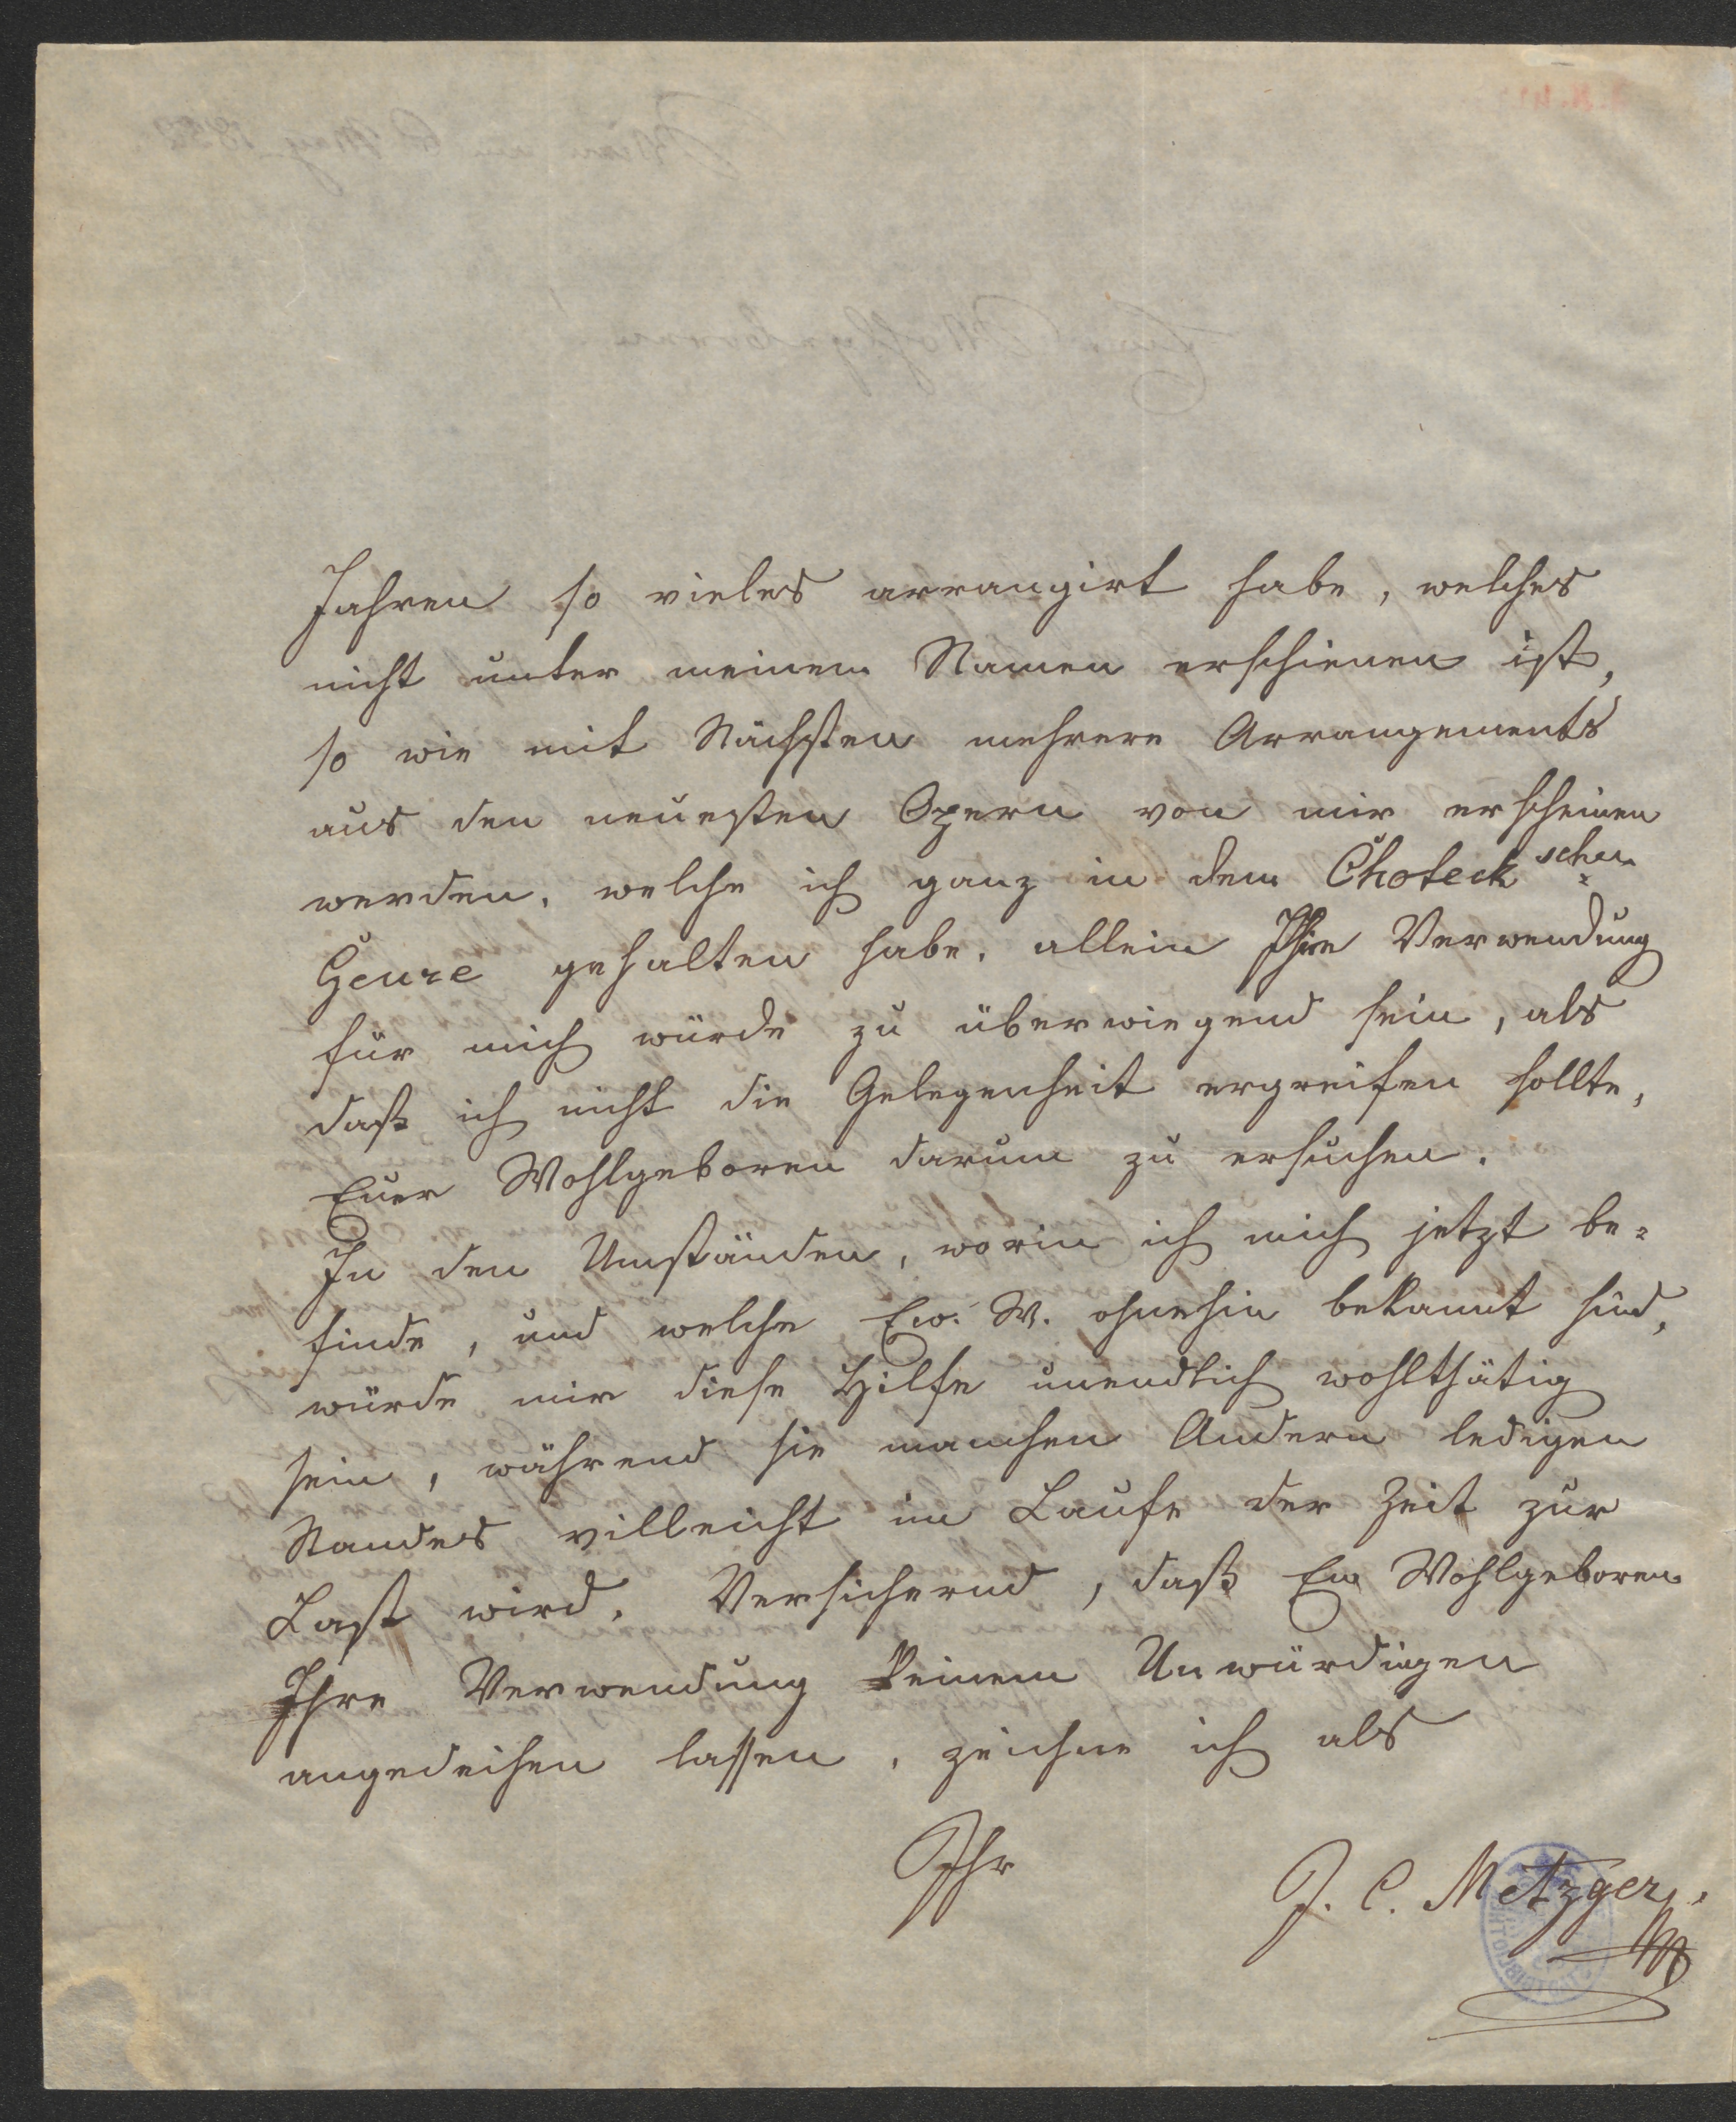 Jahren so vieles arrangirt habe, welches
nicht unter meinem Namen erschienen ist,
so wie mit Nächsten mehrere Arrangements
aus den neuesten Opern von mir erscheinen
werden, welche ich ganz in dem Choteck'schen
Genre gehalten habe, allein Ihre Verwendung
für mich würde zu überwiegend sein, als
daß ich nicht die Gelegenheit ergreifen sollte,
Euer Wohlgeboren darum zu ersuchen.
In den Umständen, worin ich mich jetzt be-
finde, und welche Ew. W. ohnehin bekannt sind,
würde mir diese Hilfe unendlich wohlthätig
sein, während sie manchen Andern ledigen
Standes villeicht im Laufe der Zeit zur
Last wird. Versichernd, daß Ew Wohlgeboren
Ihre Verwendung keinem Unwürdigen
angedeihen lassen, zeichne ich als
Ihr
J. C. Metzger